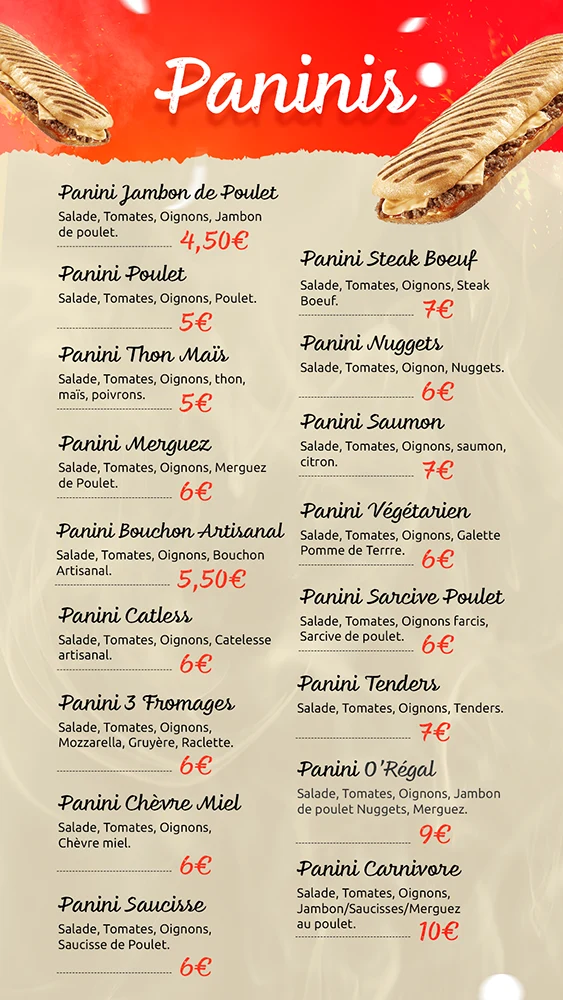 Paninis
Panini Jambon de Poulet
Salade, Tomates, Oignons, Jambon
de poulet.
4,50€
Panini Poulet
Salade, Tomates, Oignons, Poulet.
5€
Panini Thon Maïs
Salade, Tomates, Oignons, thon,
maïs, poivrons.
5€
Panini Merguez
Salade, Tomates, Oignons, Merguez
de Poulet.
6€
Panini Bouchon Artisanal
Salade, Tomates, Oignons, Bouchon
Artisanal.
5,50€
Panini Catless
Salade, Tomates, Oignons, Catelesse
artisanal.
6€
Panini 3 Fromages
Salade, Tomates, Oignons,
Mozzarella, Gruyère, Raclette.
6€
Panini Chèvre Miel
Salade, Tomates, Oignons,
Chèvre miel.
6€
Panini Saucisse
Salade, Tomates, Oignons,
Saucisse de Poulet.
6€
Panini Steak Boeuf
Salade, Tomates, Oignons, Steak
Boeuf.
7€
Panini Nuggets
Salade, Tomates, Oignon, Nuggets.
6€
Panini Saumon
Salade, Tomates, Oignons, saumon,
citron.
7€
Panini Végétarien
Salade, Tomates, Oignons, Galette
Pomme de Terrre.
6€
Panini Sarcive Poulet
Salade, Tomates, Oignons farcis,
Sarcive de poulet.
6€
Panini Tenders
Salade, Tomates, Oignons, Tenders.
7€
Panini O'Régal
Salade, Tomates, Oignons, Jambon
de poulet Nuggets, Merguez.
9€
Panini Carnivore
Salade, Tomates, Oignons,
Jambon/Saucisses/Merguez
au poulet.
10€